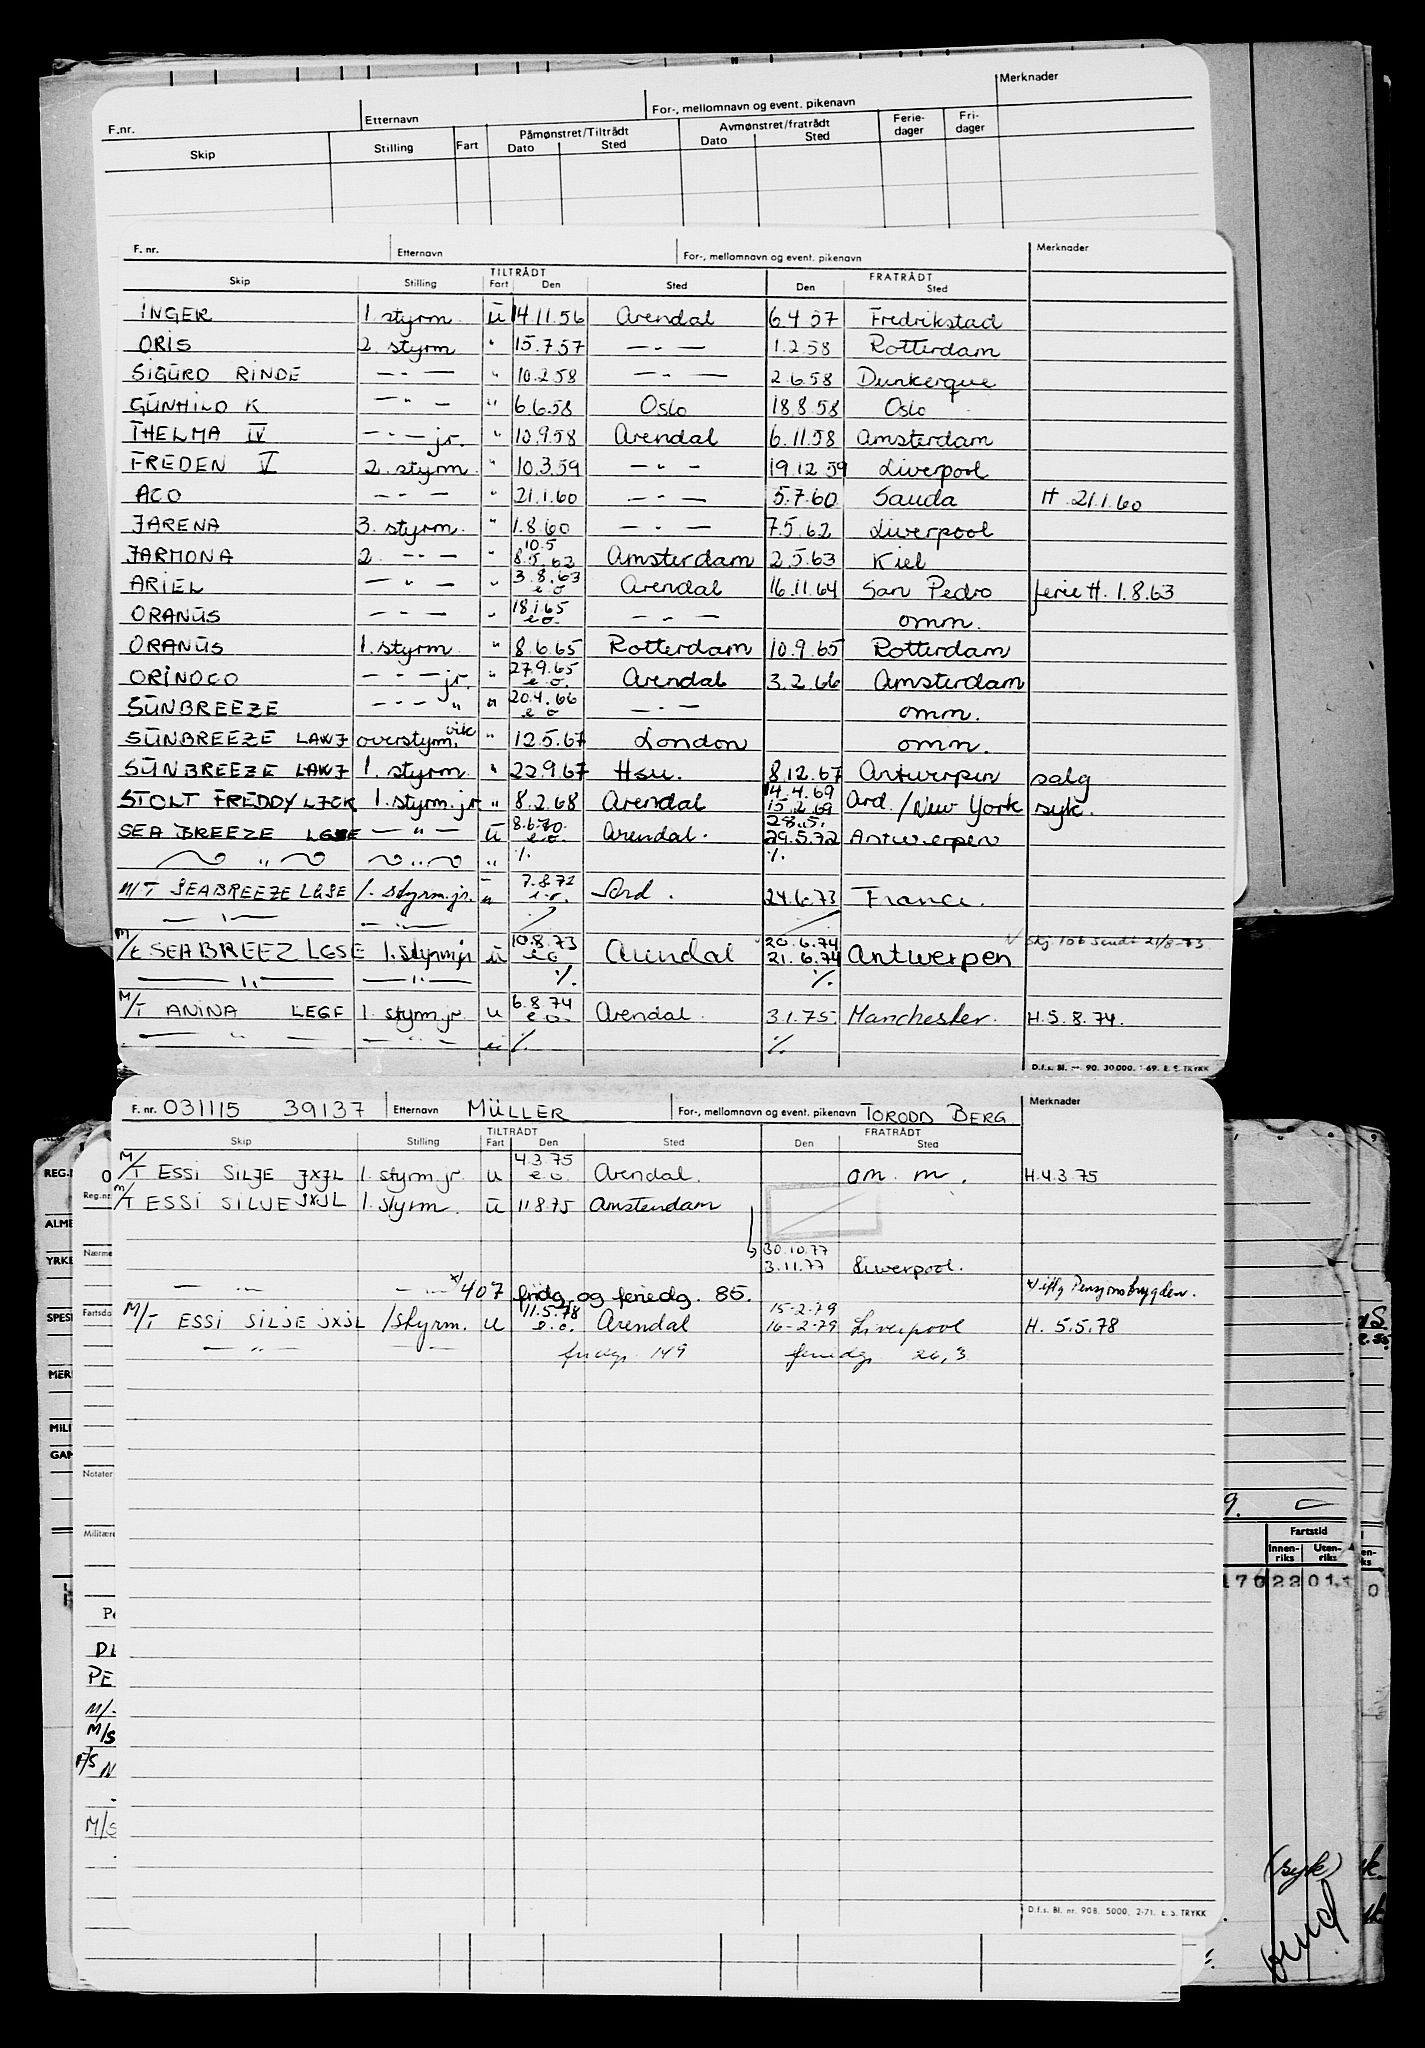 F.nr. Etternavn For-, mellomnavn og event. pikenavn Merknader
Skip Stilling Fart Påmønstret/Tiltrådt Dato Sted Avmønstret/fratrådt Dato Sted Ferie- dager Fri- dager
F. nr. Etternavn For-, mellomnavn og event. pikenavn Merknader
TILTRÅDT FRATRÅDT
Skip Stilling Fart Den Sted Den Sted
INGER 1. styrm. u 14.11.56 Arendal 6.4.57 Fredrikstad
ORIS 2. styrm " 15.7.57 — " — 1.2.58 Rotterdam
SIGURD RINDE — " — " 10.2.58 — " — 2.6.58 Dunkerque
GUNHILD K — " — " 6.6.58 Oslo 18.8.58 Oslo
THELMA IV — " — jr. " 10.9.58 Arendal 6.11.58 Amsterdam
FREDEN V 2. styrm. " 10.3.59 — " — 19.12.59 Liverpool
ACO — " — " 21.1.60 — " — 5.7.60 Sauda H. 21.1.60
JARENA 3. styrm. " 1.8.60 — " — 7.5.62 Liverpool
JARMONA 2. — " — " 10.5 8.5.62 Amsterdam 2.5.63 Kiel
ARIEL — " — " 3.8.63 e.o. Arendal 16.11.64 San Pedro ferie H. 1.8.63
ORANUS — " — " 18.1.65 e.o. — " — omm.
ORANUS 1. styrm. " 8.6.65 Rotterdam 10.9.65 Rotterdam
ORINOCO — " — jr. " 27.9.65 e.o. Arendal 3.2.66 Amsterdam
SUNBREEZE — " — " " 20.4.66 e.o. — " — omm.
SUNBREEZE LAWJ overstyrm. vik " 12.5.67 London omm.
SUNBREEZE LAWJ 1. styrm. " 22.9.67 Hsu. 8.12.67 Antwerpen salg
STOLT FREDDY LJCK 1. styrm. jr " 8.2.68 Arendal 14.4.69 15.2.69 Ard. / New York syk.
SEA BREEZE LGSE — " — u 8.6.70. e.o. Arendal. 28.5. 29.5.72 Antwerpen
" " " % %.
M/T SEABREEZE LGSE 1. styrm. jr. u 7.8.72 e.o. Ard. 24.6.73 France.
— " — — " —
M/T SEABREEZ LGSE 1. styrm jr u 10.8.73 e.o Arendal 20.6.74 21.6.74 Antwerpen Skj. 106 sendt 21/8-73
— " — — " — %. %.
M/T ANINA LEGF 1. styrm. jr. u 6.8.74 e.o. Arendal. 3.1.75 Manchester. H.5.8.74.
— " — — " — u %. %.
D.f.s. Bl. nr. 90. 30000. 1-69. E. S. TRYKK
F. nr. 031115 39137 Etternavn MÜLLER For-, mellomnavn og event. pikenavn TORODD BERG. Merknader
TILTRÅDT FRATRÅDT
Skip Stilling Fart Den Sted Den Sted
M/T ESSI SILJE JXJL 1. styrm. jr. u 4.3.75 e.o. Arendal. om. m. H.4.3.75
M/T ESSI SILJE JXJL 1. styrm. u 11.8.75 Amsterdam
30.10.77
3.11.77 Liverpool.
— " — — " — x/ 407 fridg. og feriedg. 85. x/ iflg Pensjonstrygden.
M/T ESSI SILJE JXJL 1 styrm. u 11.5.78 e.o. Arendal 15-2-79 16-2-79 Liverpool H. 5.5.78
— " — — " — fridg. 149 feriedg. 26,3
D.f.s. Bl. nr. 90B. 5000. 2-71. E. S. TRYKK
REG.
Reg.nr.
ALME
YRKE
Nærme
SPES
Fartsda
MERK
MILI
GAM
Notater
Militære
DL
PE
M/S
F/S
M/S
Fartstid
Innen- riks Uten- riks
(syk)